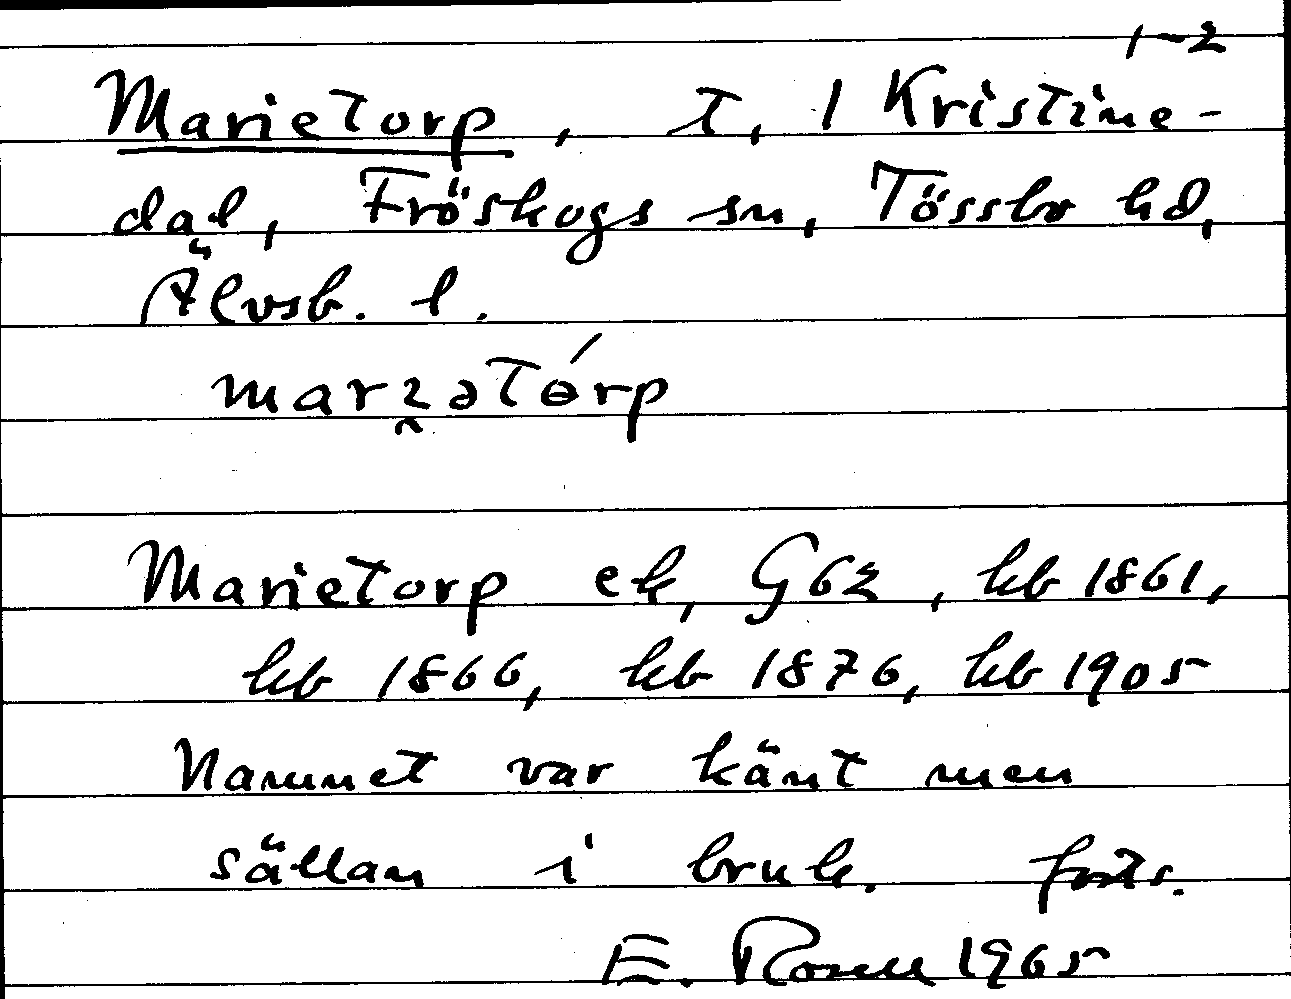 1-2
Marietorp, t, 1 Kristine-
dal, Fröskogs sn, Tössbo hd,
Älvsb. l.
Marietorp ek, G62, kb 1861,
kb 1866, kb 1876, kb 1905
Namnet var känt men
sällan i bruk. forts.
E. Rosell 1965